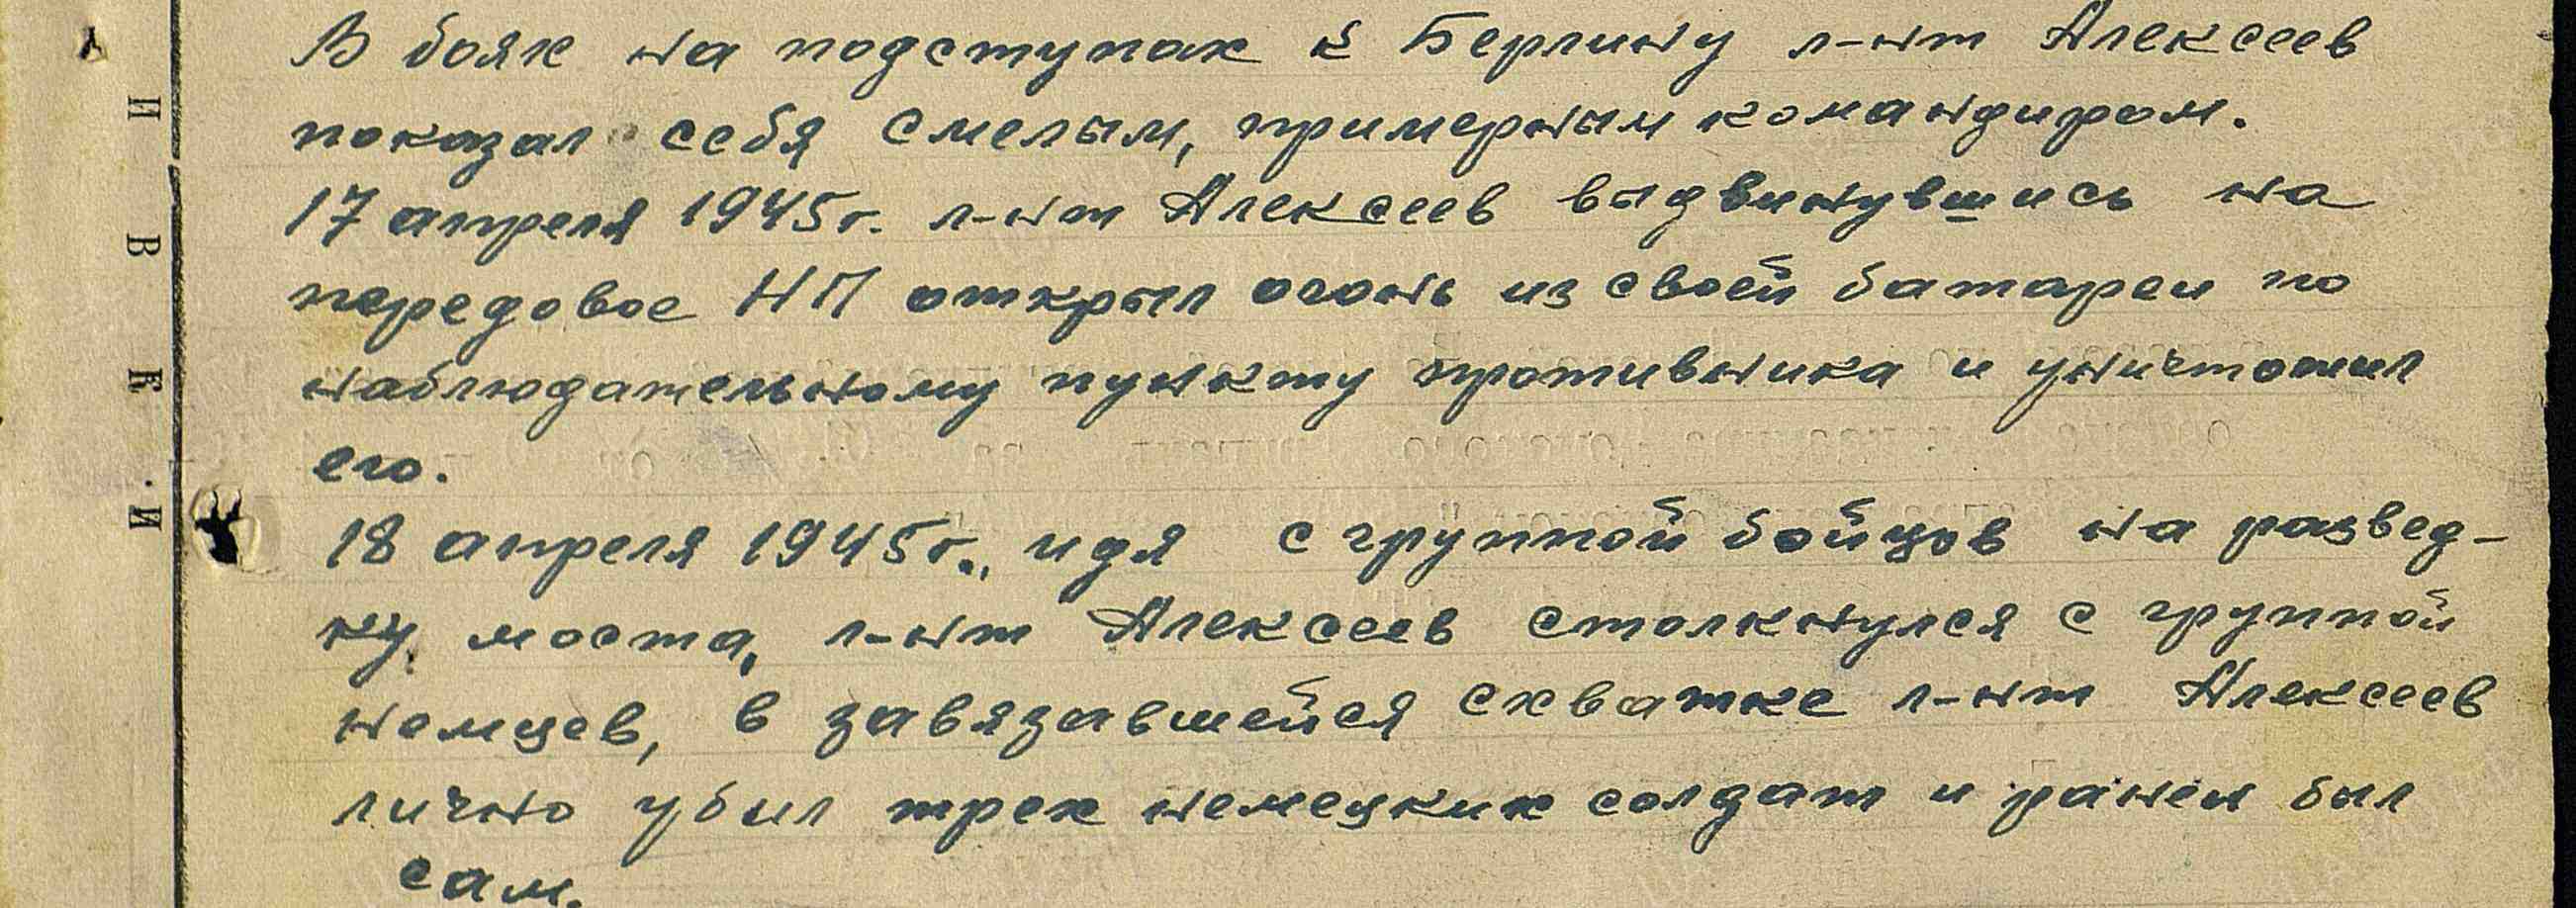 В боях на подступах к Берлину л-нт Алексеев
показал себя смелым, примерным командиром.
17 апреля 1945г. л-нт Алексеев выдвинувшись на
передовое НП открыл огонь из своей батареи по
наблюдательному пункту противника и уничтожил
его.
18 апреля 1945г., идя с группой бойцов на развед-
ку моста, л-нт Алексеев столкнулся с группой
немцев, в завязавшейся схватке л-нт Алексеев
лично убил трех немецких солдат и ранен был
сам.